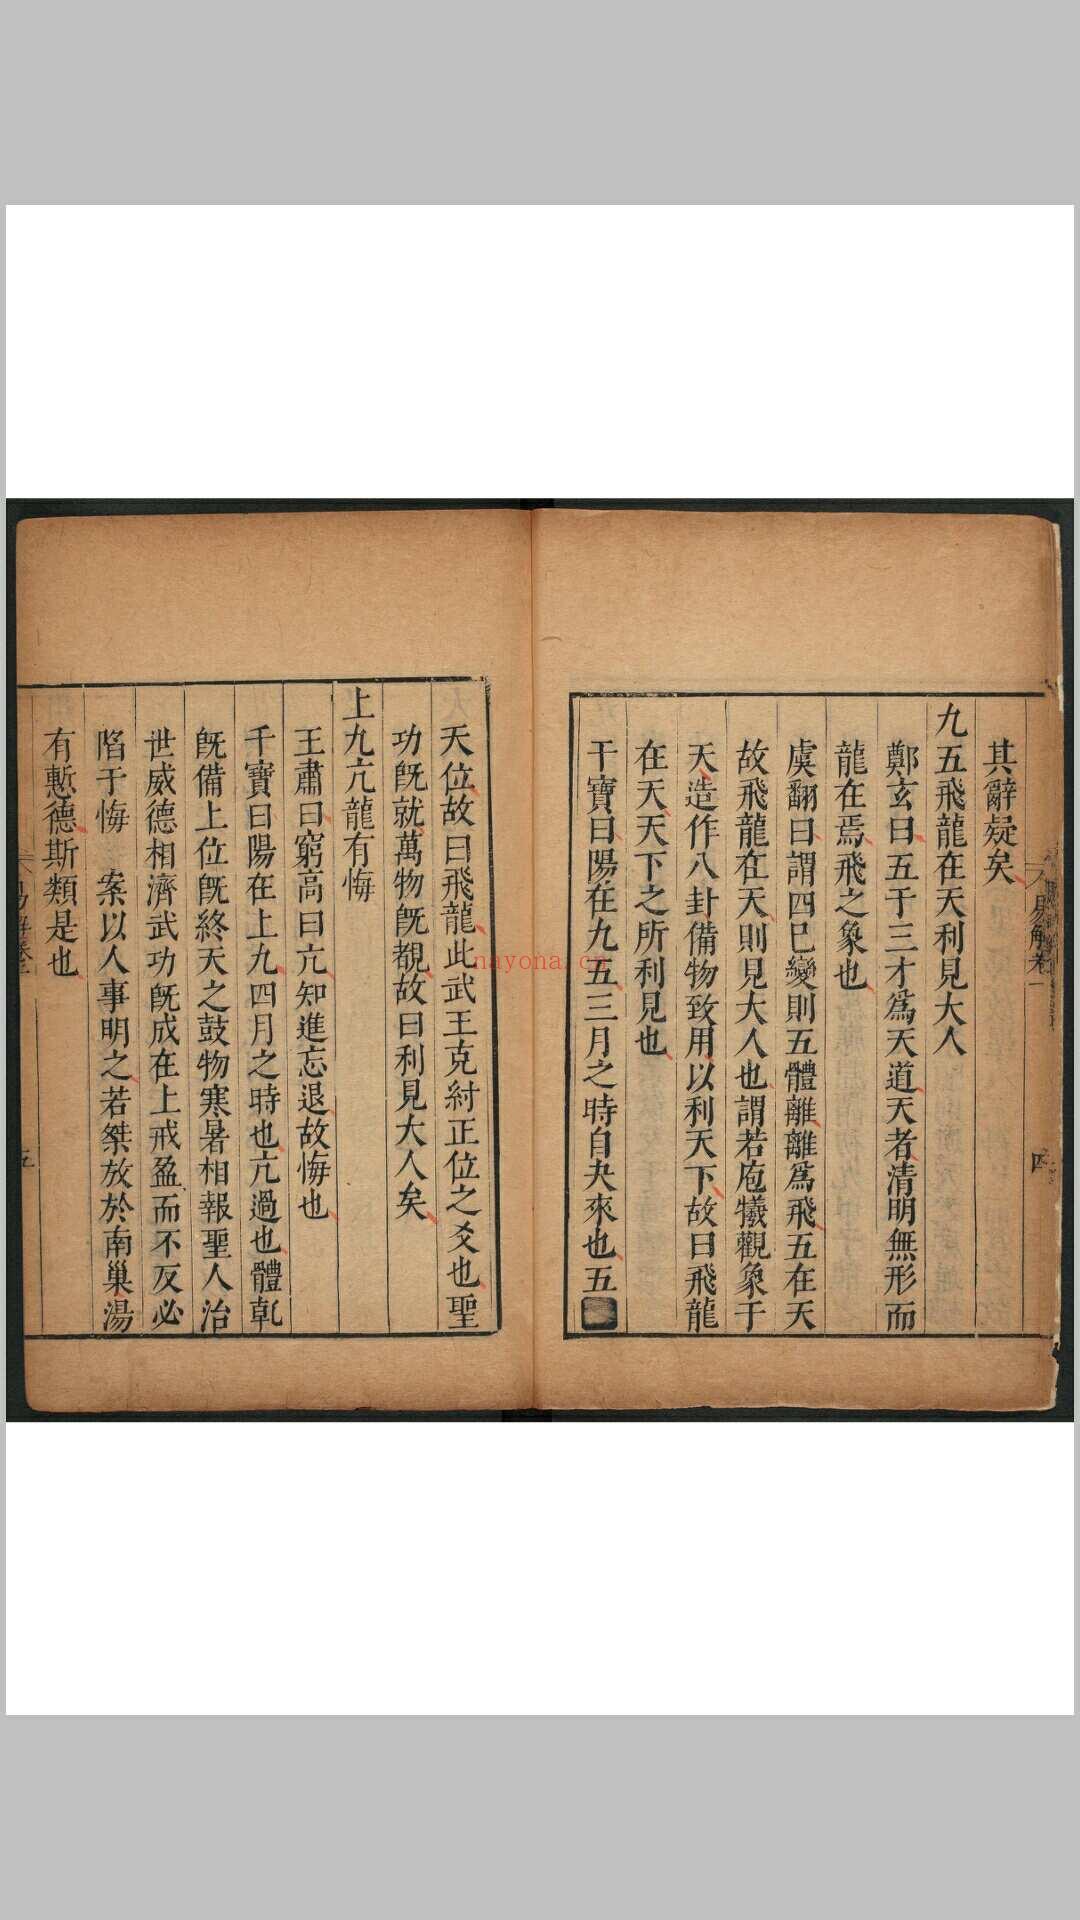 易解卷一
四
其辭疑矣
九五飛龍在天利見大人
鄭玄曰五于三才爲天道天者清明無形而
龍在焉飛之象也
虞翻曰謂四巳變則五體離離爲飛五在天
故飛龍在天則見大人也謂若庖犧觀象于
天造作八卦備物致用以利天下故曰飛龍
在天天下之所利見也
干寶曰陽在九五三月之時自夬來也五
天位故曰飛龍此武王克紂正位之爻也聖
功旣就萬物旣覩故曰利見大人矣
上九亢龍有悔
王肅曰窮高曰亢知進忘退故悔也
干寶曰陽在上九四月之時也亢過也體乹
旣備上位旣終天之鼓物寒暑相報聖人治
世威德相濟武功旣成在上戒盈而不反必
陷于悔 案以人事明之若桀放於南巢湯
有慙德斯類是也
五
nayona.cn